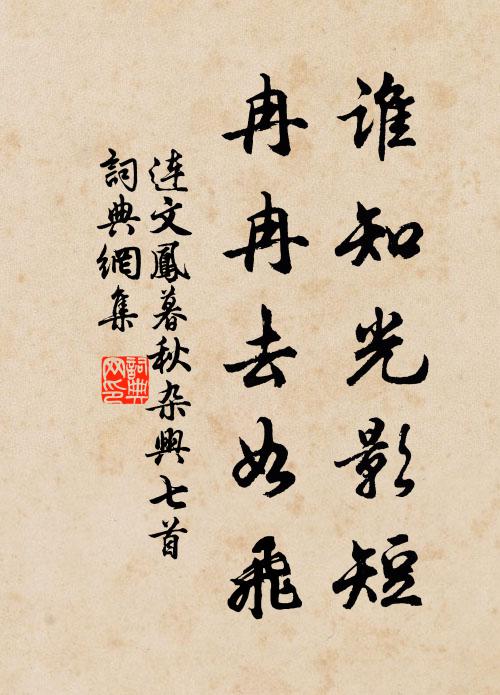 谁知光影短
冉冉去如飛
连文鳳暮秋杂興七首
詞典網集
詞典网印